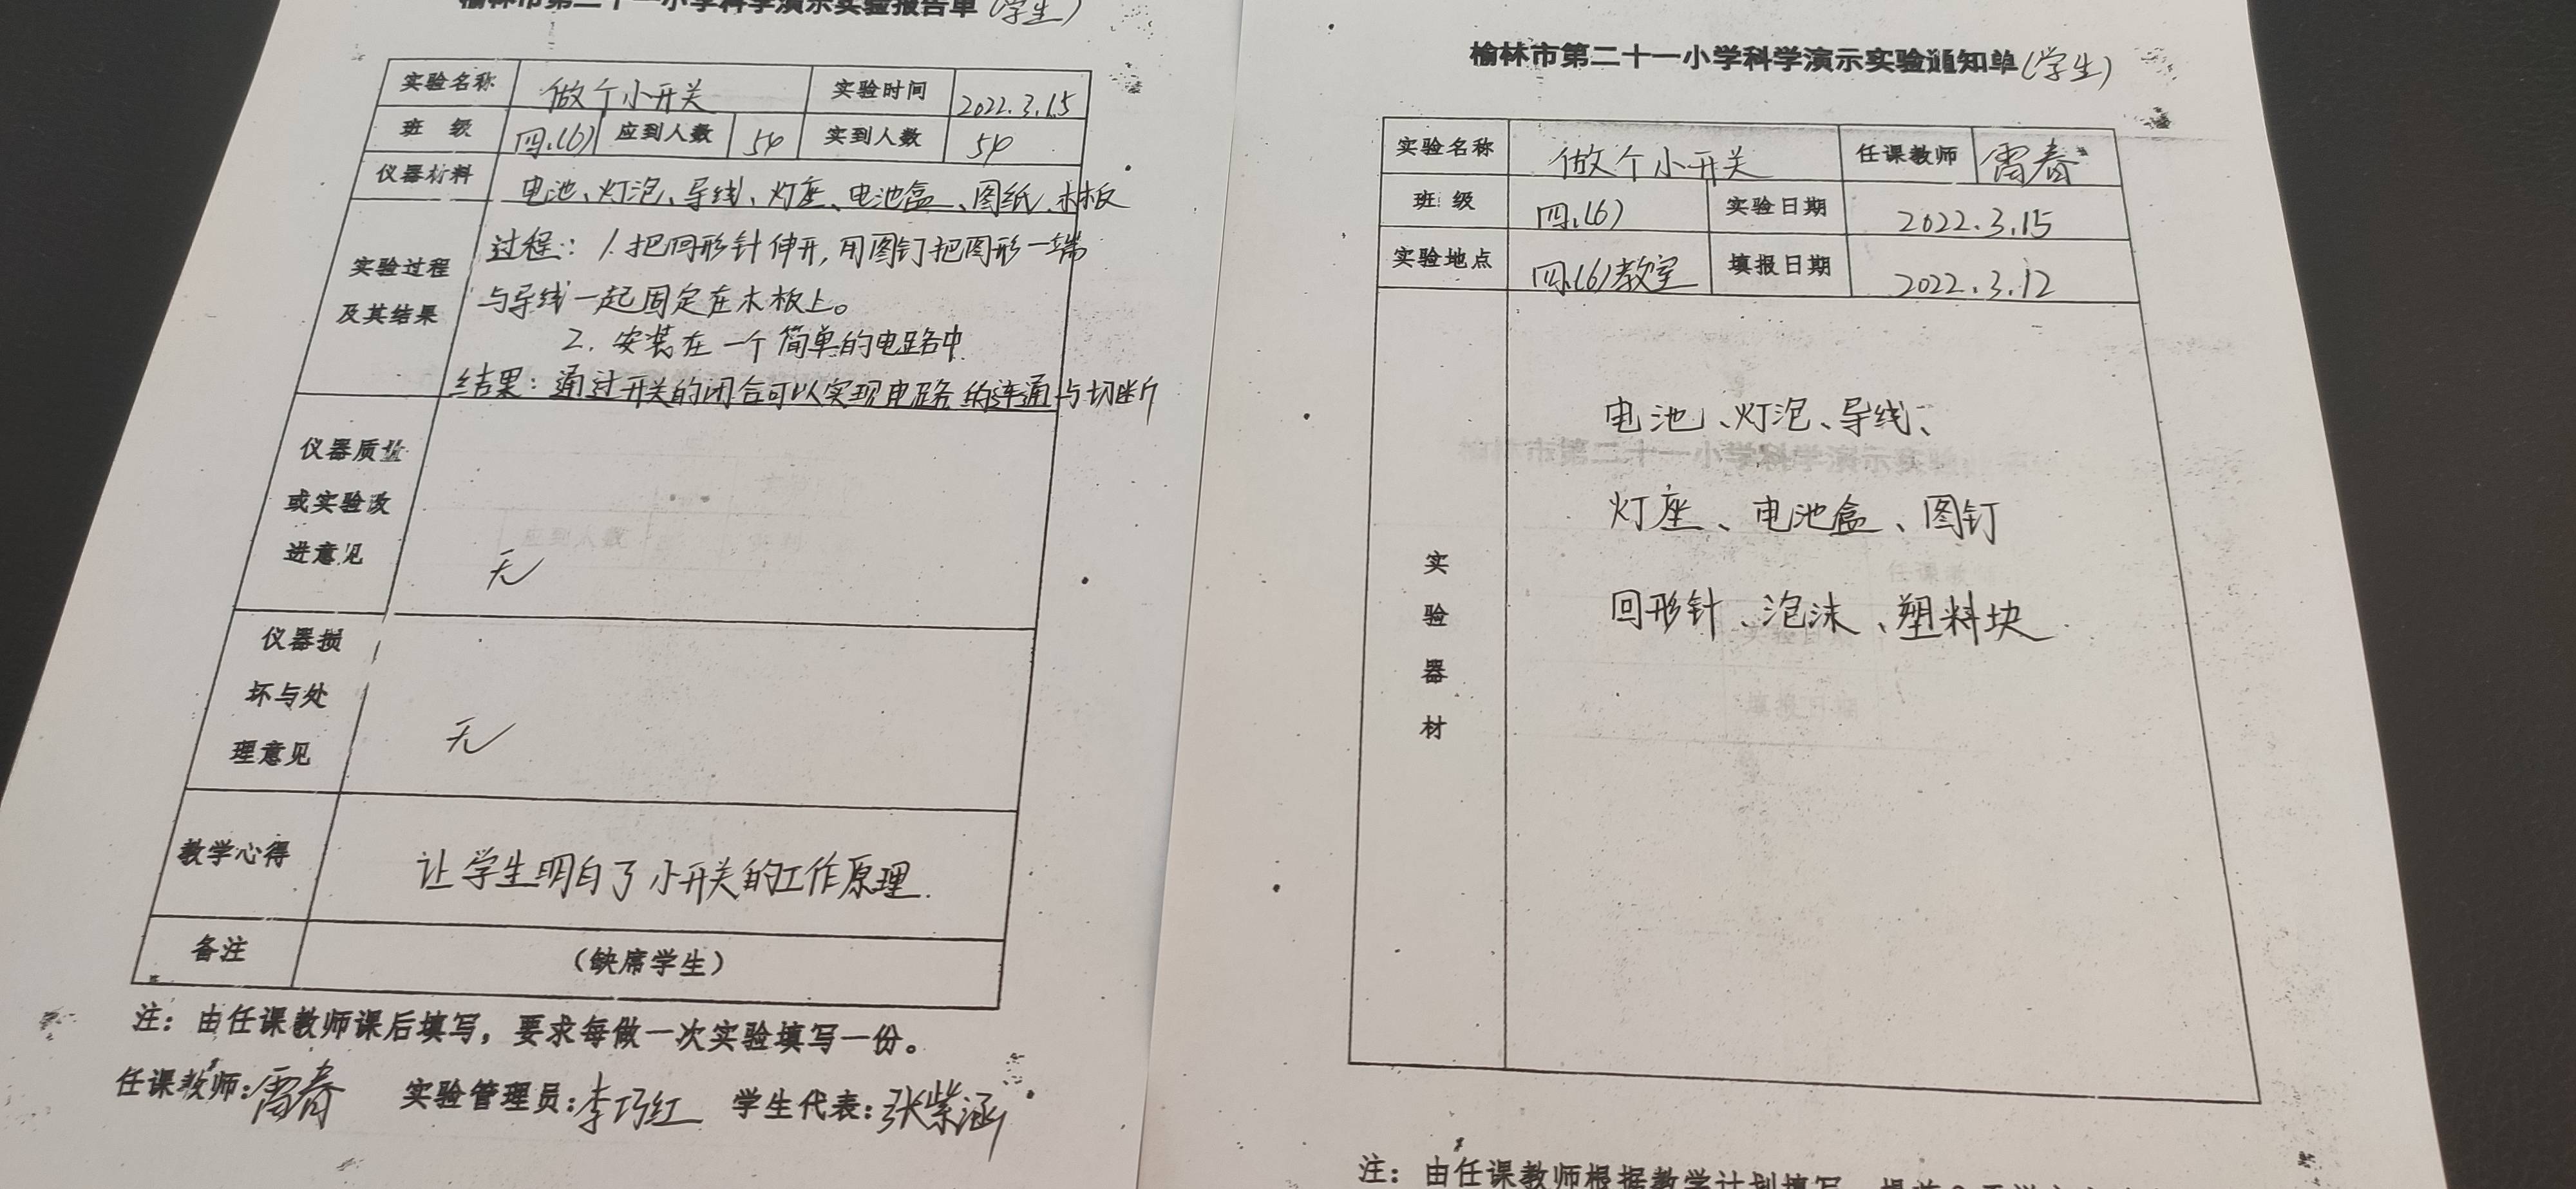 榆林市第二十一小学科学演示实验报告单(学生)
实验名称 做个小开关 实验时间 2022.3.15
班 级 四.(6) 应到人数 54 实到人数 54
仪器材料 电池、灯泡、导线、灯座、电池盒、图纸、木板
实验过程及其结果
过程:1.把回形针伸开,用图钉把图形一端
与导线一起固定在木板上。
2.安装在一个简单的电路中
结果:通过开关的闭合可以实现电路的连通与切断
仪器质量
或实验改
进意见
无
仪器损
坏与处
理意见
无
教学心得 让学生明白了小开关的工作原理.
备注 (缺席学生)
注:由任课教师课后填写,要求每做一次实验填写一份。
任课教师:雷春 实验管理员:李巧红 学生代表:张紫涵
榆林市第二十一小学科学演示实验通知单(学生)
实验名称 做个小开关 任课教师 雷春
班 级 四.(6) 实验日期 2022.3.15
实验地点 四.(6)教室 填报日期 2022.3.12
实
验
器
材
电池、灯泡、导线、
灯座、电池盒、图钉
回形针、泡沫、塑料块
注:由任课教师根据教学计划填写